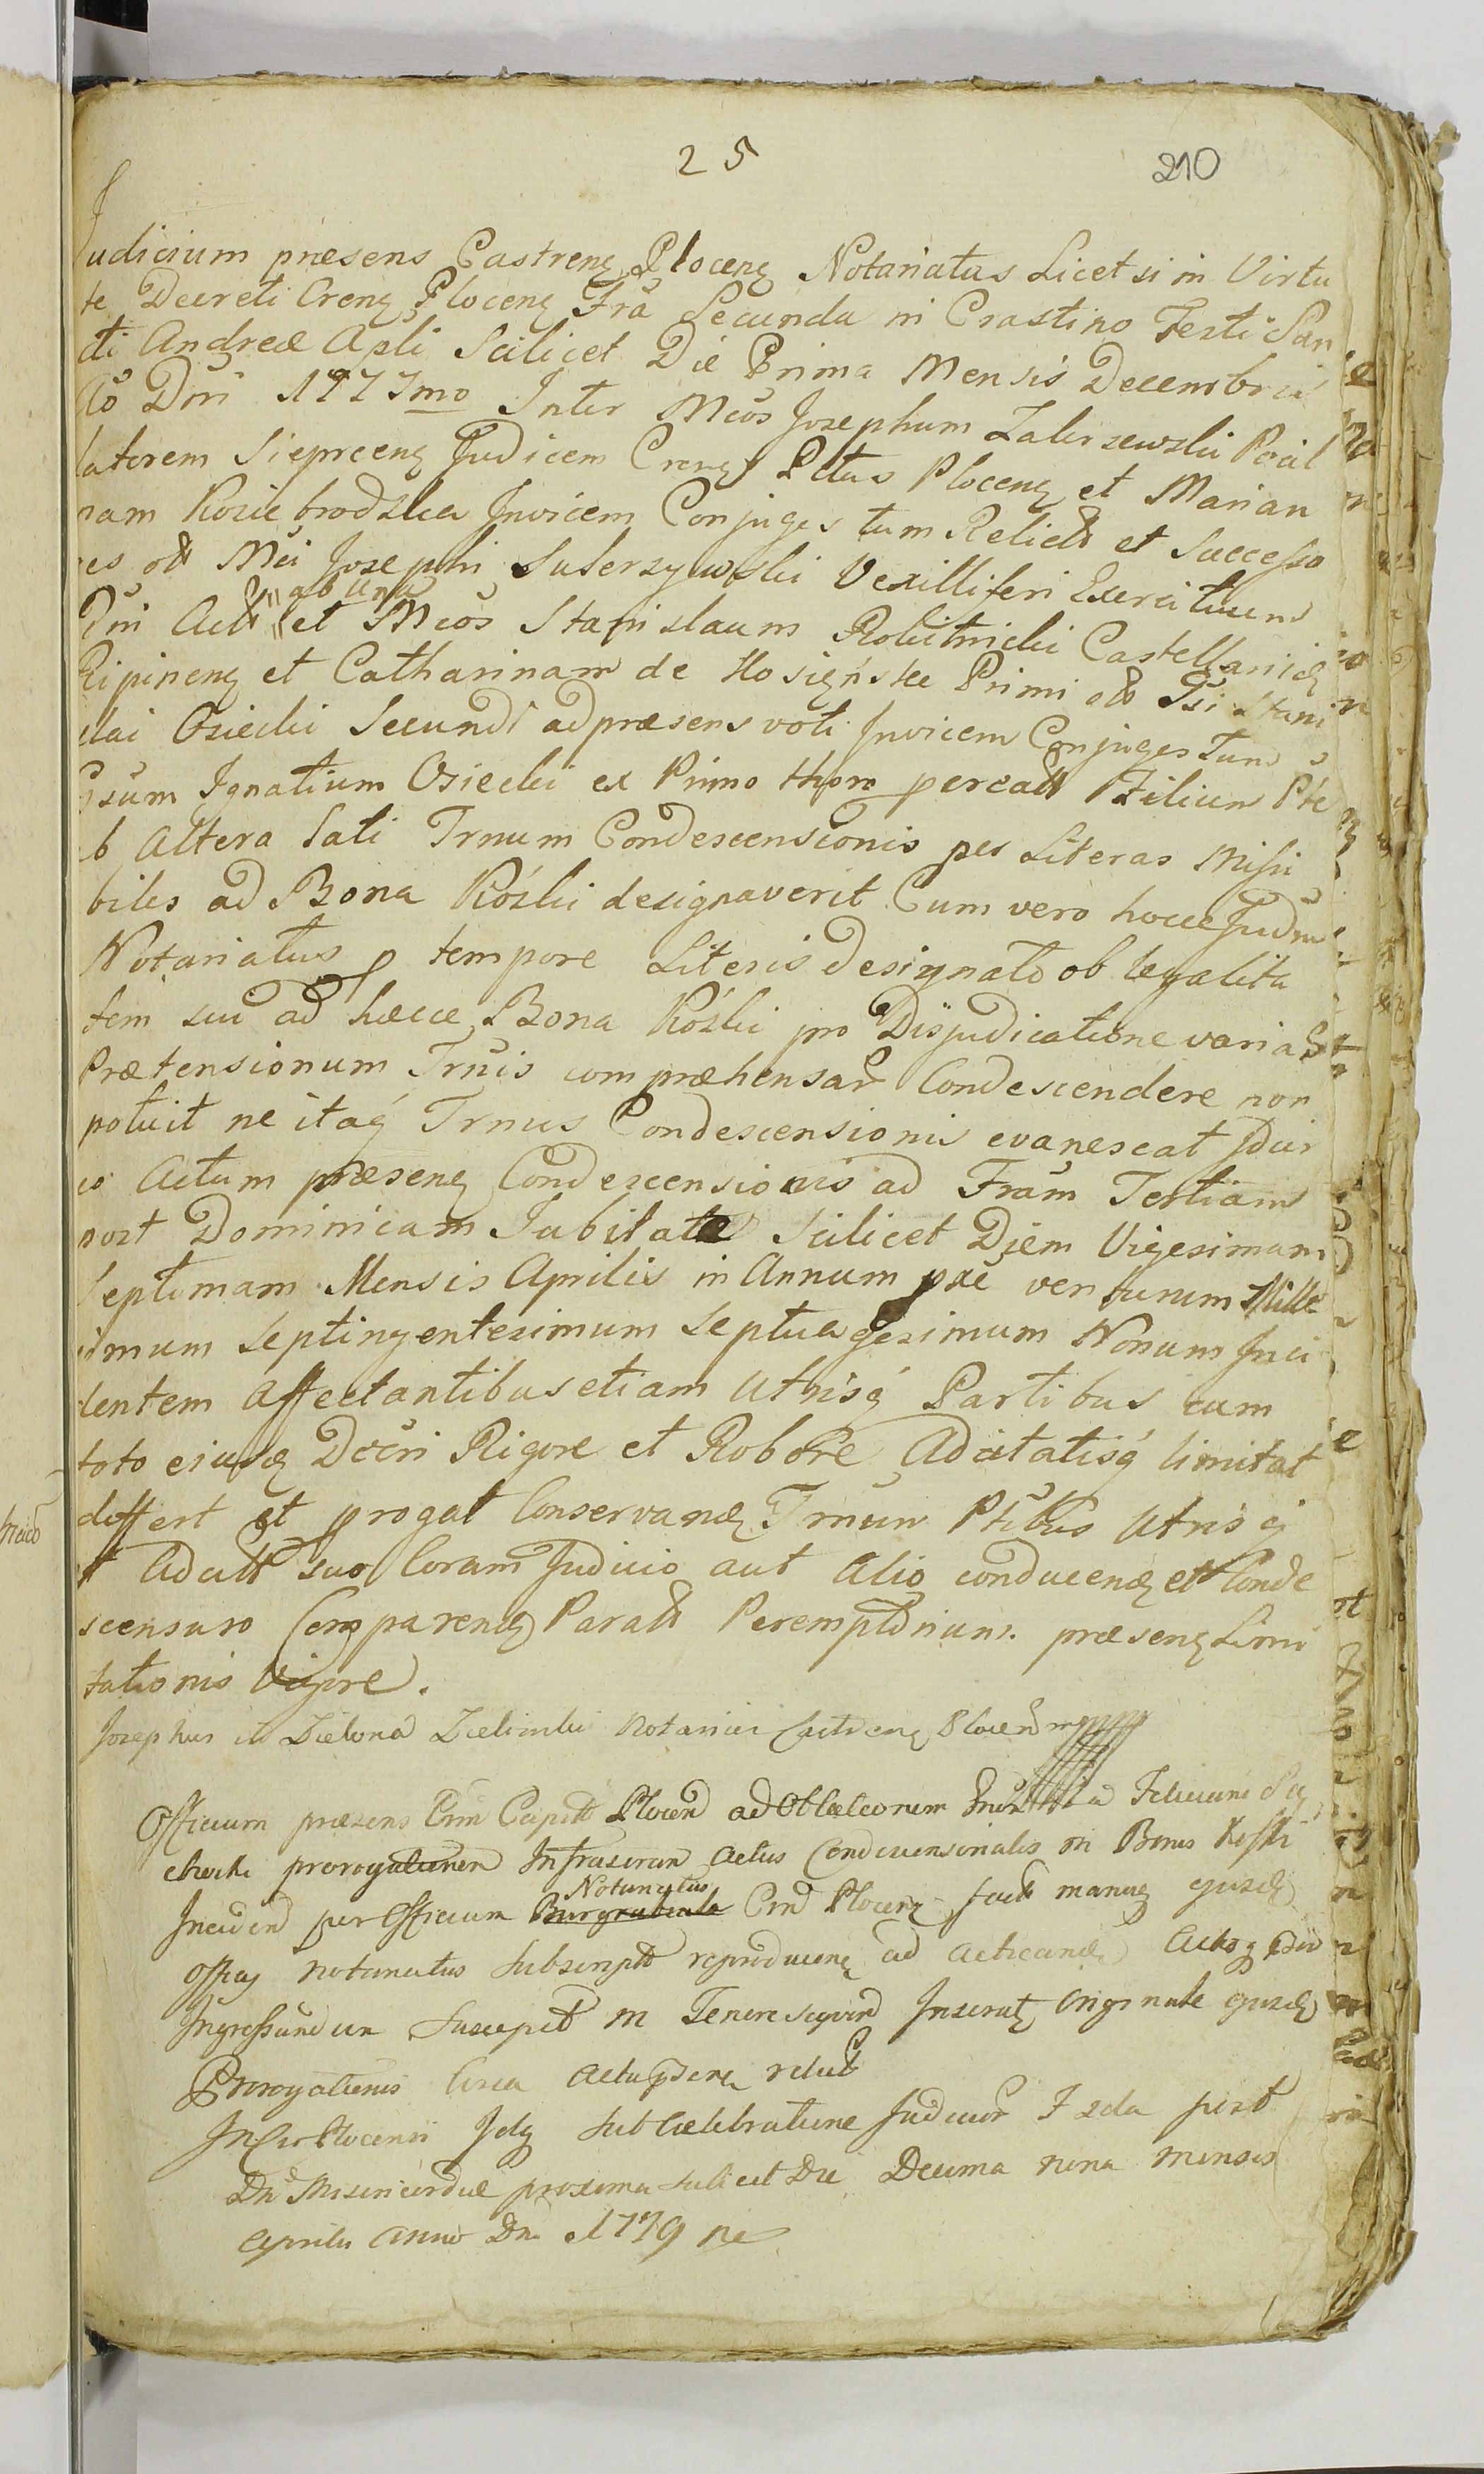 25
210
Judicium præsens Castrenꝫ Plocenꝫ Notariatus Licet si in Virtu
te Decreti Crenꝫ Plocenꝫ Fra Secunda in Crastino Festi San
cti Andreæ Apli Scilicet Die Prima Mensis Decembris
Ao Dni 1777mo Inter Mcos Josephum Zalerzewski Pocil
latorem Sieprcenꝫ Judicem Crenꝫ Pttus Plocenꝫ et Marian
nam Koziebrodzka Invicem Conjuges tum Relictt et Successo
res ott Mci Josephi Suserzywski Vexilliferi Exercituum
Dni Actt ab una et Mcos Stanislaum Rokitnicki Castellanidꝫ
Ripinenꝫ et Catharinam de Kosińskie Primi ott Gsi Stani
slai Osiecki Secundi ad præsens voti Invicem Conjuges Tum
Gsum Ignatium Osiecki ex Primo thoro percatt Filium Pte
ab Altera Sati Trnum Condescensionis per Literas Missi
biles ad Bona Kóski designaverit Cum vero hocce Judm
Notariatus p tempore Literis designato ob legalita
tem suã ad hæcce Bona Kóski pro Disjudicatione variar
Prætensionum Trnis compræhensar Condescendere non
potuit ne itaq́ Trnus Condescensionis evanescat Idcir
co Actum præsenꝫ Condescensionis ad Fram Tertiam
post Dominicam Jubilate Scilicet Diem Vigesimam
Septimam Mensis Aprilis in Annum præ venturum Mille
simum Septingentesimum Septuagesimum Nonum Inci
dentem Affectantibus etiam Utrisq́ Partibus cum
toto ejusdꝫ Dcri Rigore et Robore Adcitatisq́ limitat
differt et progat Conservandꝫ Trnum Ptibus Utrisq́
et Adcitt suo Coram Judicio aut Alio conducendꝫ et Conde
scensuro Comparendꝫ Paratt Peremptorium præsenꝫ Limi
tationis Vigore.
Josephus de Zielona Zielinski Notarius Castrenꝫ Plocen mpp
Officium præsens Crim Capitt Plocen ad Feliciani
prorogationem Infrascran Actus Condescensionalis in Bonis Koski
Inciden per Officium Burgrabiale Notariatus Crn Plocenꝫ factt manuꝫ ejusdꝫ
Offic Notariatus Subscriptt reproducenꝫ ad acticandꝫ
Ingressandum Suscepit in Tenere sequen Inseratꝫ Originale ejusdꝫ
Prorogationis Circa relictt
sub Celebratione Judicior F 2da post
Dn Misericordiæ proxima scilicet Die Decima nona mensis
Aprilis Anno Dni 1779no